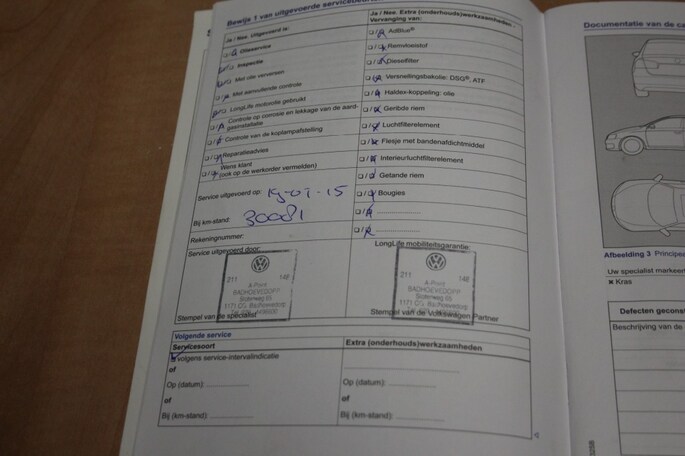 Bewijs 1 van uitgevoerde
Ja / Nee Uitgevoerd is:
Olieservice
Inspectie
Met olie verversen
Met aanvullende controle
LongLife motorolie gebruikt
Controle op corrosie en lekkage van de aard-
gasinstallatie
Controle van de koplampafstelling
Reparatieadvies
Wens klant
(ook op de werkorder vermelden)
Service uitgevoerd op:
Bij km-stand: 30081
Rekeningnummer:
Service uitgevoerd door:
211 148
A-Point
BADHOEVEDORP
Sloterweg 65
Stempel van de specialist
Ja / Nee Extra (onderhouds)werkzaamheden -
Vervanging van:
AdBlue®
Remvloeistof
Dieselfilter
Versnellingsbakolie: DSG®, ATF
Haldex-koppeling: olie
Geribde riem
Luchtfilterelement
Flesje met bandenafdichtmiddel
Interieurluchtfilterelement
Getande riem
Bougies
LongLife mobiliteitsgarantie:
211 148
A-Point
BADHOEVEDORP
Sloterweg 65
Stempel van de Volkswagen Partner
Volgende service
Servicesoort
volgens service-intervalindicatie
of
Op (datum):
of
Bij (km-stand):
Extra (onderhouds)werkzaamheden
Op (datum):
of
Bij (km-stand):
Documentatie van de ca
Afbeelding 3 Principea
Uw specialist markeert
Kras
Defecten geconst
Beschrijving van de